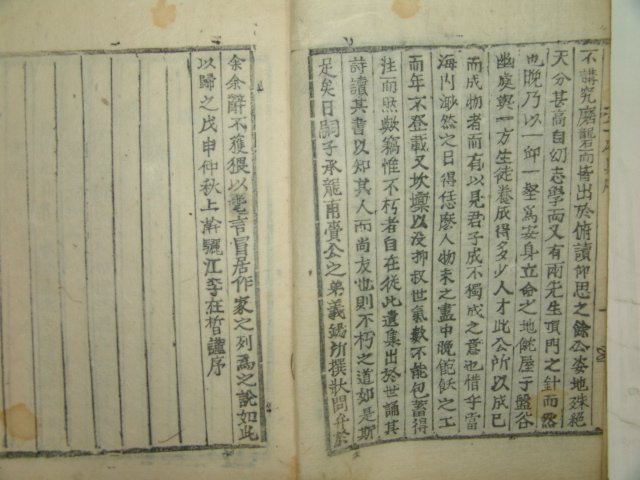 不講究磨礱而皆出於俯讀仰思之餘公姿地殊絕
天分甚高自幼志學而又有兩先生頂門之針而然
也晩乃以一邱一壑爲安身立命之地餙屋子盤谷
幽處與一方生徒養成得多少人才此公所以成已
而成物者而有以見君子成不獨成之意也惜乎當
海內渺然之日得恁麽人物未之盡中晩飽飫之工
而年不登載又坎壈以沒抑叔世氣數不能包蓄得
注而然歟竊惟不朽者自在從此遺集出於世誦其
詩讀其書以知其人而尚友也則不朽之道如是斯
足矣日嗣子承龍甫賫公之弟義鎬所撰狀問弁於
余余辭不獲猥以耄言冒居作家之列爲之說如此
以歸之戊申仲秋上澣驪江李在晳謹序